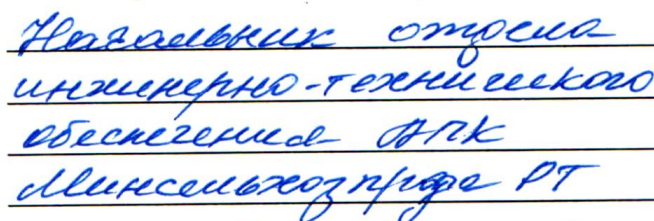 Начальник отдела
инженерно-технического
обеспечения АПК
Минсельхозпрода РТ